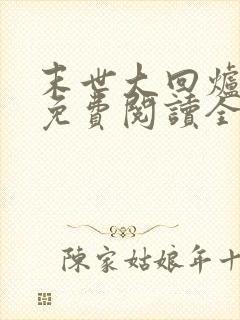 末世大回爐
免費閱讀全
陳家姑娘年十